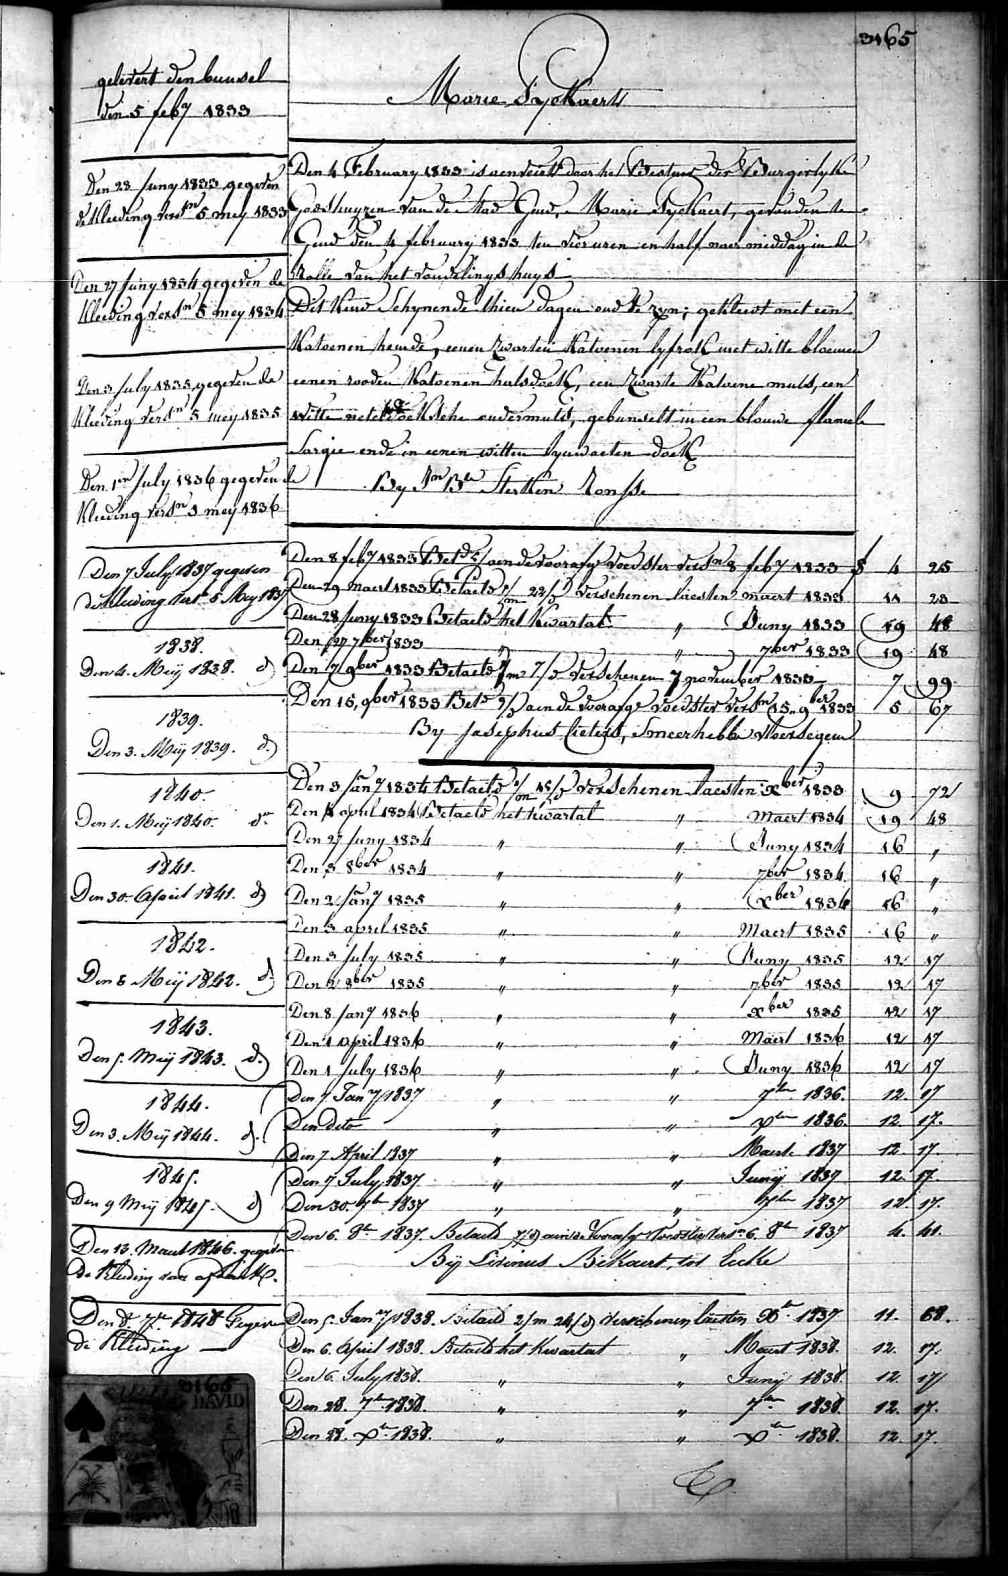 3165
gelevert den bunsel
den 5 feby 1833
Den 23 Juny 1833 gegeven
de Kleeding versn 5 mey 1833
Den 27 Juny 1834 gegeven de
Kleeding versn 5 mey 1834
Den 3 July 1835 gegeven de
Kleeding versn 5 mey 1835
Den 1en July 1836 gegeven de
Kleeding versn 5 mey 1836
Den 7 July 1837 gegeven
de Kleeding versn 5 Mey 1837
1838.
Den 4. Meij 1838. d.
1839.
Den 3. Meij 1839. d.
1840.
Den 1. Meij 1840. do
1841.
Den 30. April 1841. d.
1842.
Den 8 Meij 1842. d.
1843.
Den 5. Meij 1843. d.
1844.
Den 3. Meij 1844. d.
1845.
Den 9 Meij 1845. d
Den 13. Maart 1846. gegeven
de Kleeding van
Den 8. 7r 1848 Gegeven
de Kleeding
3165
DAVID
Marie Fyckaert
Den 4 February 1833 is aenveert door het Bestuer der Burgerlyke
Godshuyzen van de Stad Gend, Marie Fyckaert, gevonden te
Gend den 4 february 1833 ten vier uren en half naer middag in de
Rolle van het vondelings huys
Dit Kind schynende thien dagen oud te zyn; gekleed met een
Katoenen hemde, eenen zwarten Katoenen lyfrok met witte bloemen
eenen rooden Katoenen halsdoek, een zwarte Katoene muts, een
witte neteldoeksche ondermuts, gebunselt in een blauwe flanele
Sargie ende in eenen witten lynwaeten doek
By Sterken Ronsse
Den 8 feby 1833 Betd aende voorafge voedster versn 8 feby 1833 f 4 25
Den 29 Maert 1833 Betaeld 1/m 22/d verschenen laesten maert 1833 11 23
Den 28 Juny 1833 Betaeld het Kwartal " Juny 1833 19 48
Den 27 7ber 1833 " " 7ber 1833 19 48
Den 7 9ber 1833 Betaeld 1/m 7/d verschenen 7 november 1833 7 99
Den 15, 9ber 1833 Betd aende voorafge voedster versn 15, 9ber 1833 5 67
By Josephus Smeerhebbe Vloersegem
Den 3 Jany 1834 Betaeld 1/m 15/d verschenen laesten xber 1833 9 72
Den 4 april 1834 Betaeld het kwartal " Maert 1834 19 48
Den 27 Juny 1834 " " Juny 1834 16 "
Den 3 8ber 1834 " " 7ber 1834 16 "
Den 2 Jany 1835 " " xber 1834 16 "
Den 3 april 1835 " " Maert 1835 16 "
Den 3 July 1835 " " Juny 1835 12 17
Den 2 8ber 1835 " " 7ber 1835 12 17
Den 8 Jany 1836 " " xber 1835 12 17
Den 1 april 1836 " " Maert 1836 12 17
Den 1 July 1836 " " Juny 1836 12 17
Den 7 Jany 1837 " " 7ber 1836. 12. 17
Den dito " " xber 1836. 12. 17.
Den 7 April 1837 " " Maert 1837 12. 17.
Den 7 July 1837 " " Junij 1837 12. 17.
Den 30. 7br 1837 " " 7br 1837 12. 17.
Den 6. 8r 1837. Betaeld aende Voorafge Voedster versn 6. 8r 1837 4. 41.
Bij Livinus Bekaert, tot Eecke
Den 5. Jany 1838. Betaeld 2/m 24/d verschenen laesten Xr 1837 11. 68.
Den 6. April 1838. Betaeld het Kwartaal " Maert 1838. 12. 17.
Den 6. July 1838. " " Junij 1838. 12. 17
Den 28. 7br 1838. " " 7br 1838. 12. 17.
Den 28. Xr 1838. " " Xr 1838. 12. 17.